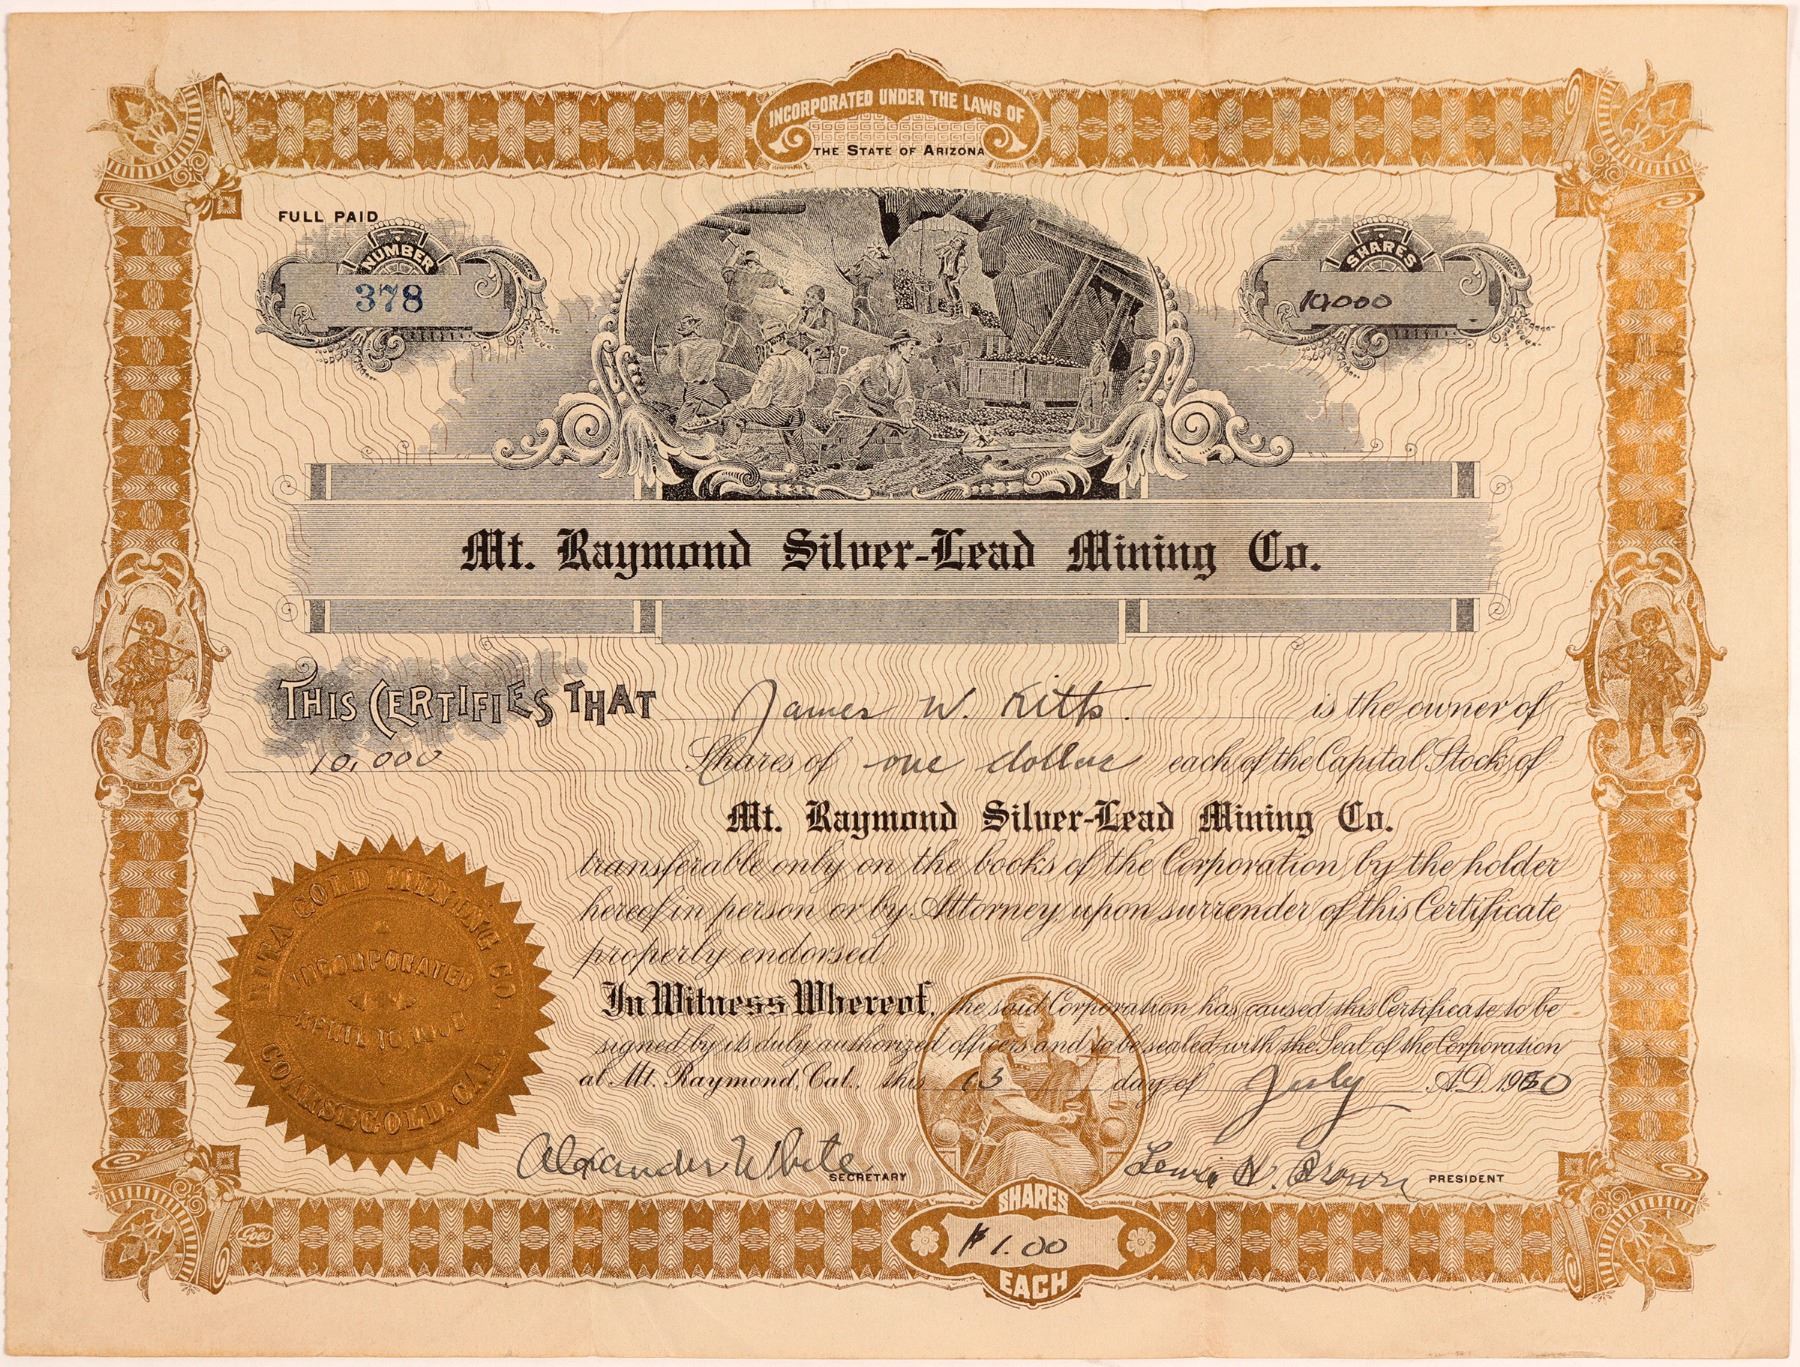 INCORPORATED UNDER THE LAWS OF
THE STATE OF ARIZONA
FULL PAID
NUMBER
378
SHARES
10,000
Mt. Raymond Silver-Lead Mining Co.
THIS CERTIFIES THAT James W. Kitts. is the owner of
10,000 Shares of one dollar each of the Capital Stock of
Mt. Raymond Silver-Lead Mining Co.
transferable only on the books of the Corporation by the holder
hereof in person or by Attorney upon surrender of this Certificate
properly endorsed.
In Witness Whereof, the said Corporation has caused this Certificate to be
signed by its duly authorized officers and to be sealed with the Seal of the Corporation
at Mt. Raymond, Cal. this day of July A.D. 19
GOLD MINING CO.
INCORPORATED
APRIL
COARSEGOLD, CAL.
Alexander White
SECRETARY
Lewis H. Brown
PRESIDENT
Goes
SHARES
$1.00
EACH